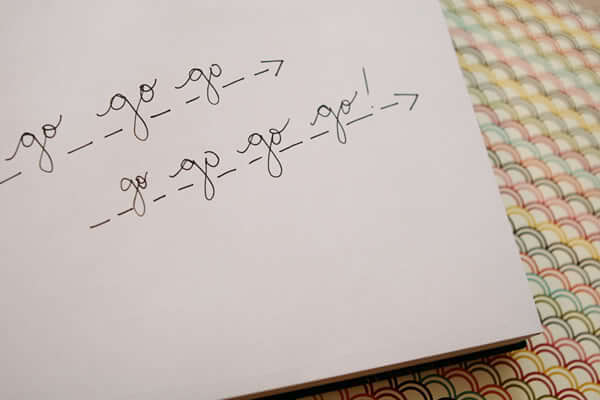 go go go
go go go go!